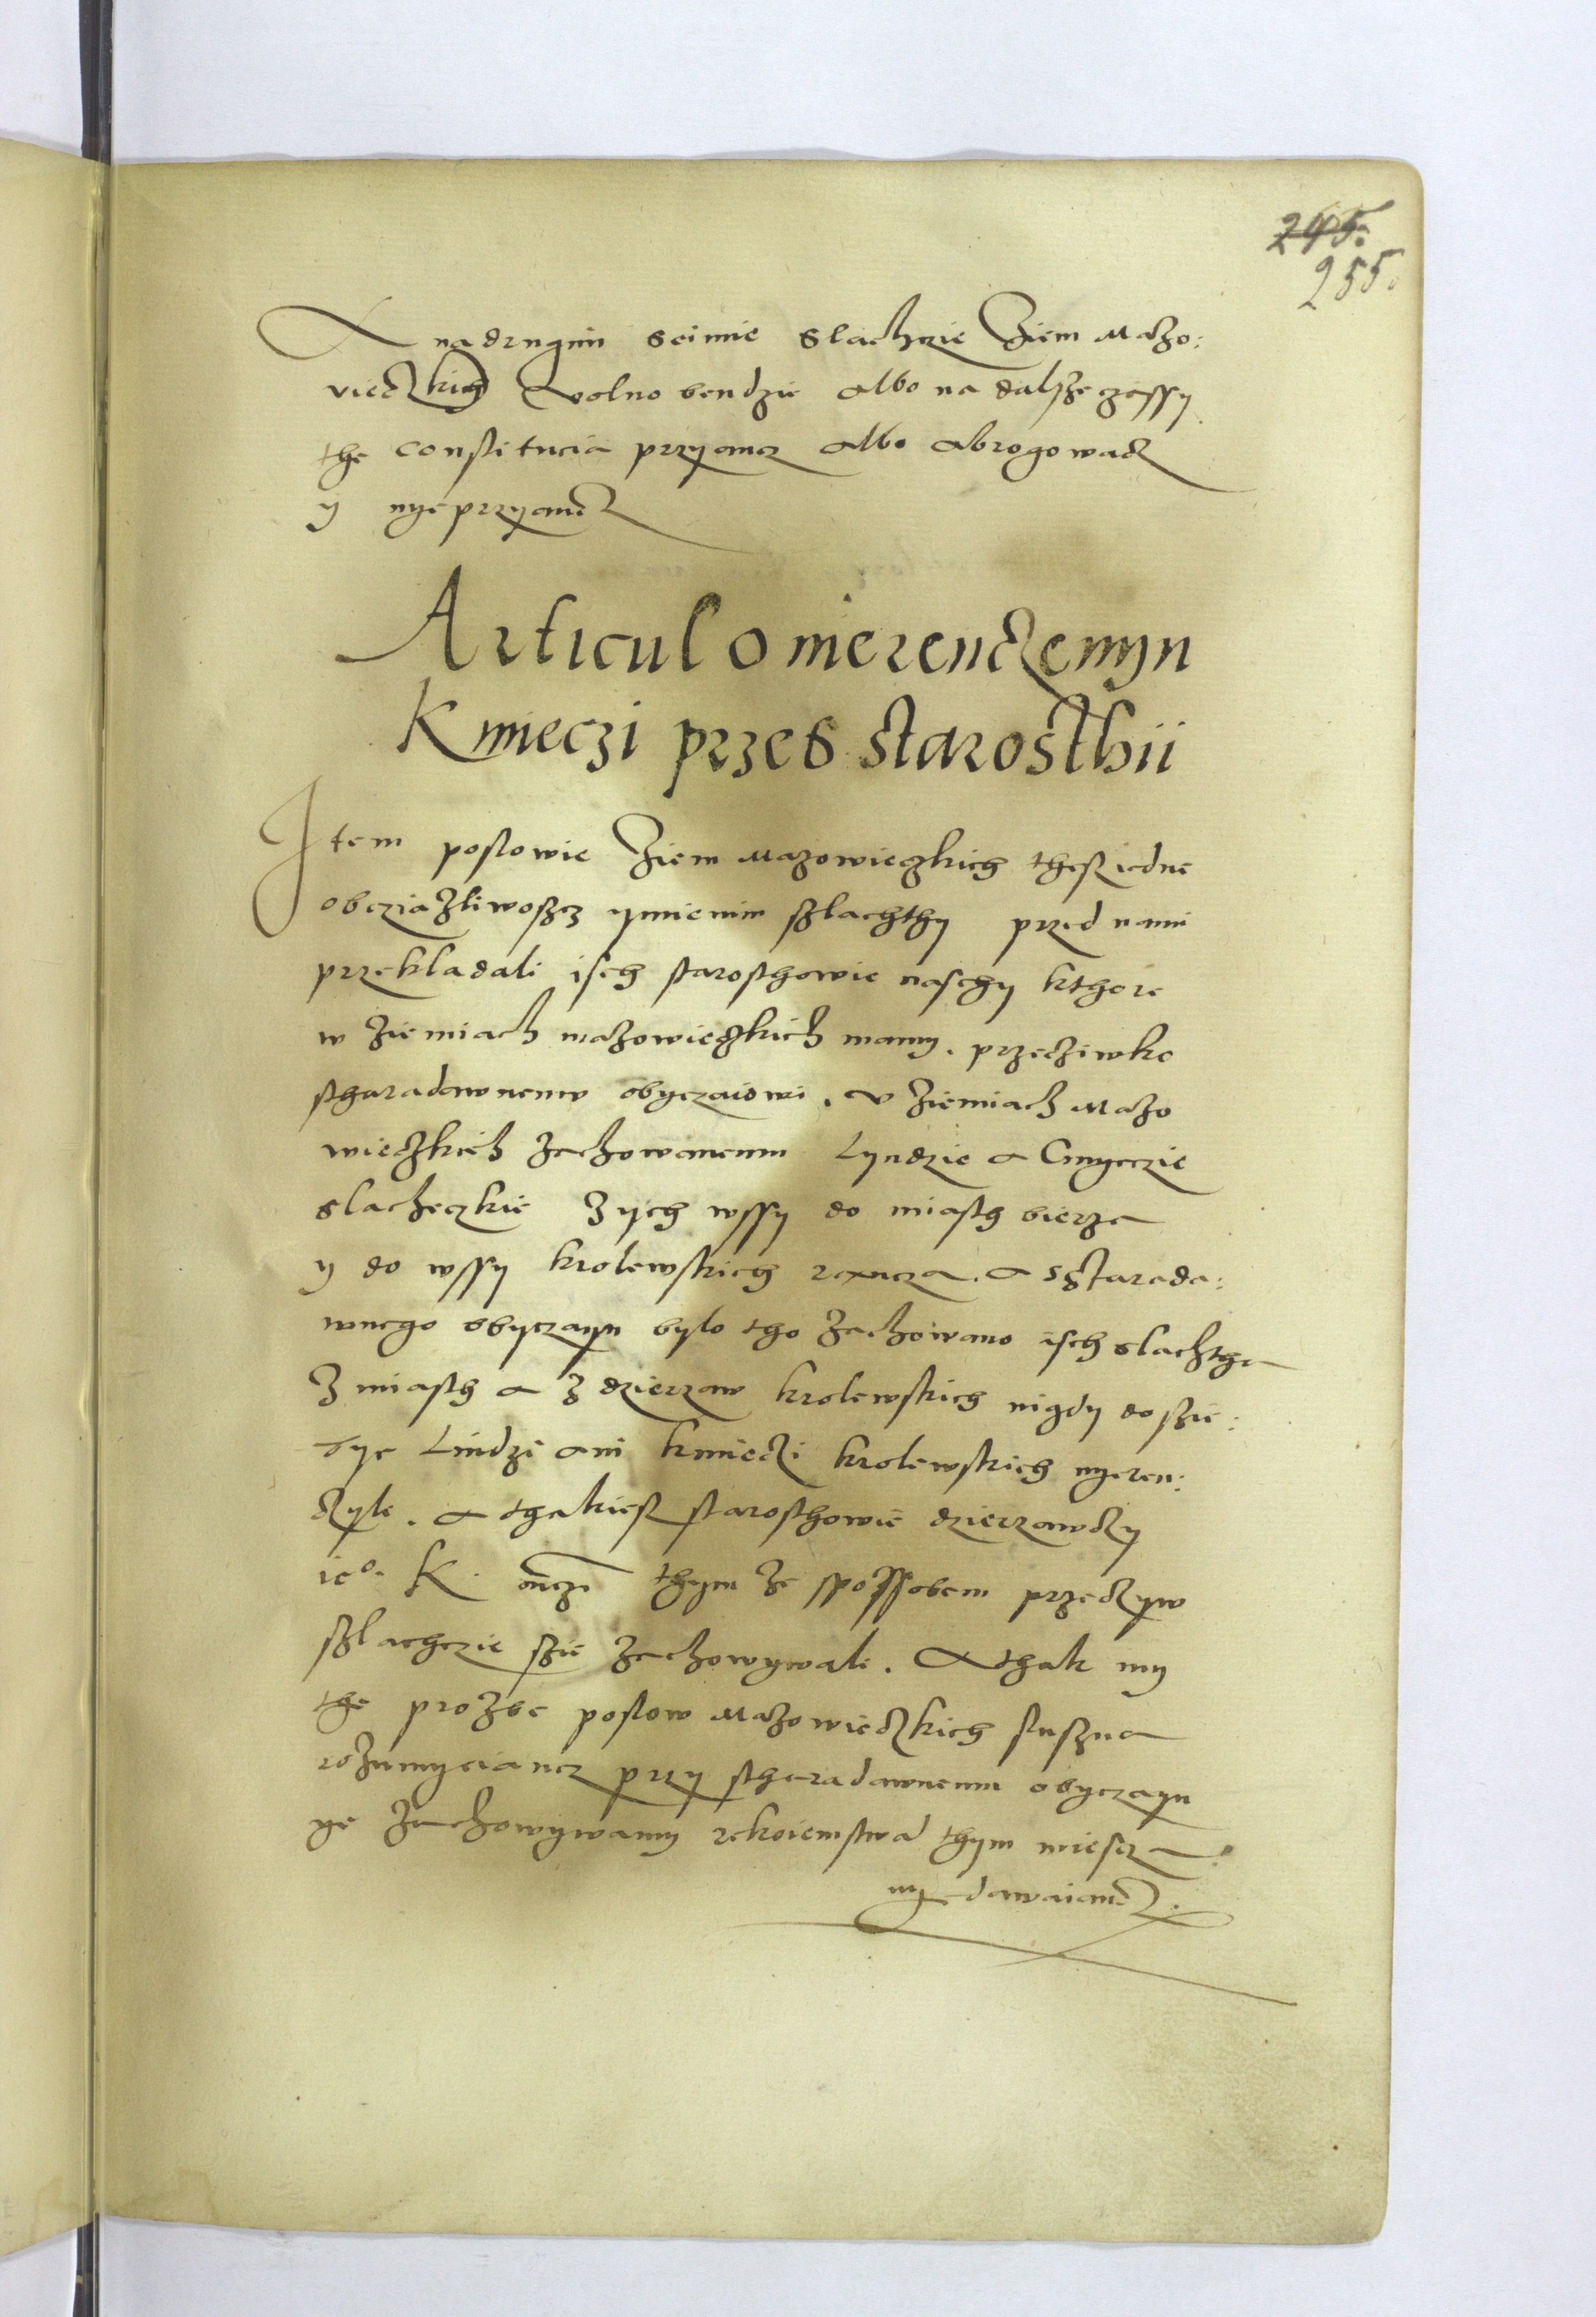 245.
255.
A nadrugim seimie slachczie Ziem Mazo:
vieczkich volno bendzie albo na dalsze czassy
the constitucia przyąncz albo abrogowacz
y nye przyąncz
Articul o nierenczenyu
Kmieczi przes starosthii
Item poslowie Ziem Mazowieczkich thesz iedne
obcziązliwoszcz ymieniw szlachthy przed nami
przekladali isch starosthowie naschy kthore
w ziemiach mazowieczkich mamy. przecziwko
stharadawnemw obyczaiowi. v ziemiach Mazo
wieczkich zachowanemu Lyudzie a Cmyeczie
slacheczkie z ych wssy do miasth bierza
y do wssy krolewskich rancza. a s starada:
wnego obyczayu bylo tho zachowano isch slachtha
z miasth a z dzierzaw krolewskich nigdy do szie:
bye Liudzi ani kmieczi krolewskich nyeren:
czyli. a thakiesz starosthowie dzierzawczy
ieo. K. mczi thym ze spossobem przeczyw
szlachczie szie zachowywali. A thak my
the prozbe poslow Mazowieczkich sluszna
rozumyeiancz przy stharadawnemu obyczayu
ye zachowywamy rekoiemstwa thym miescza
nye dawaiancz.